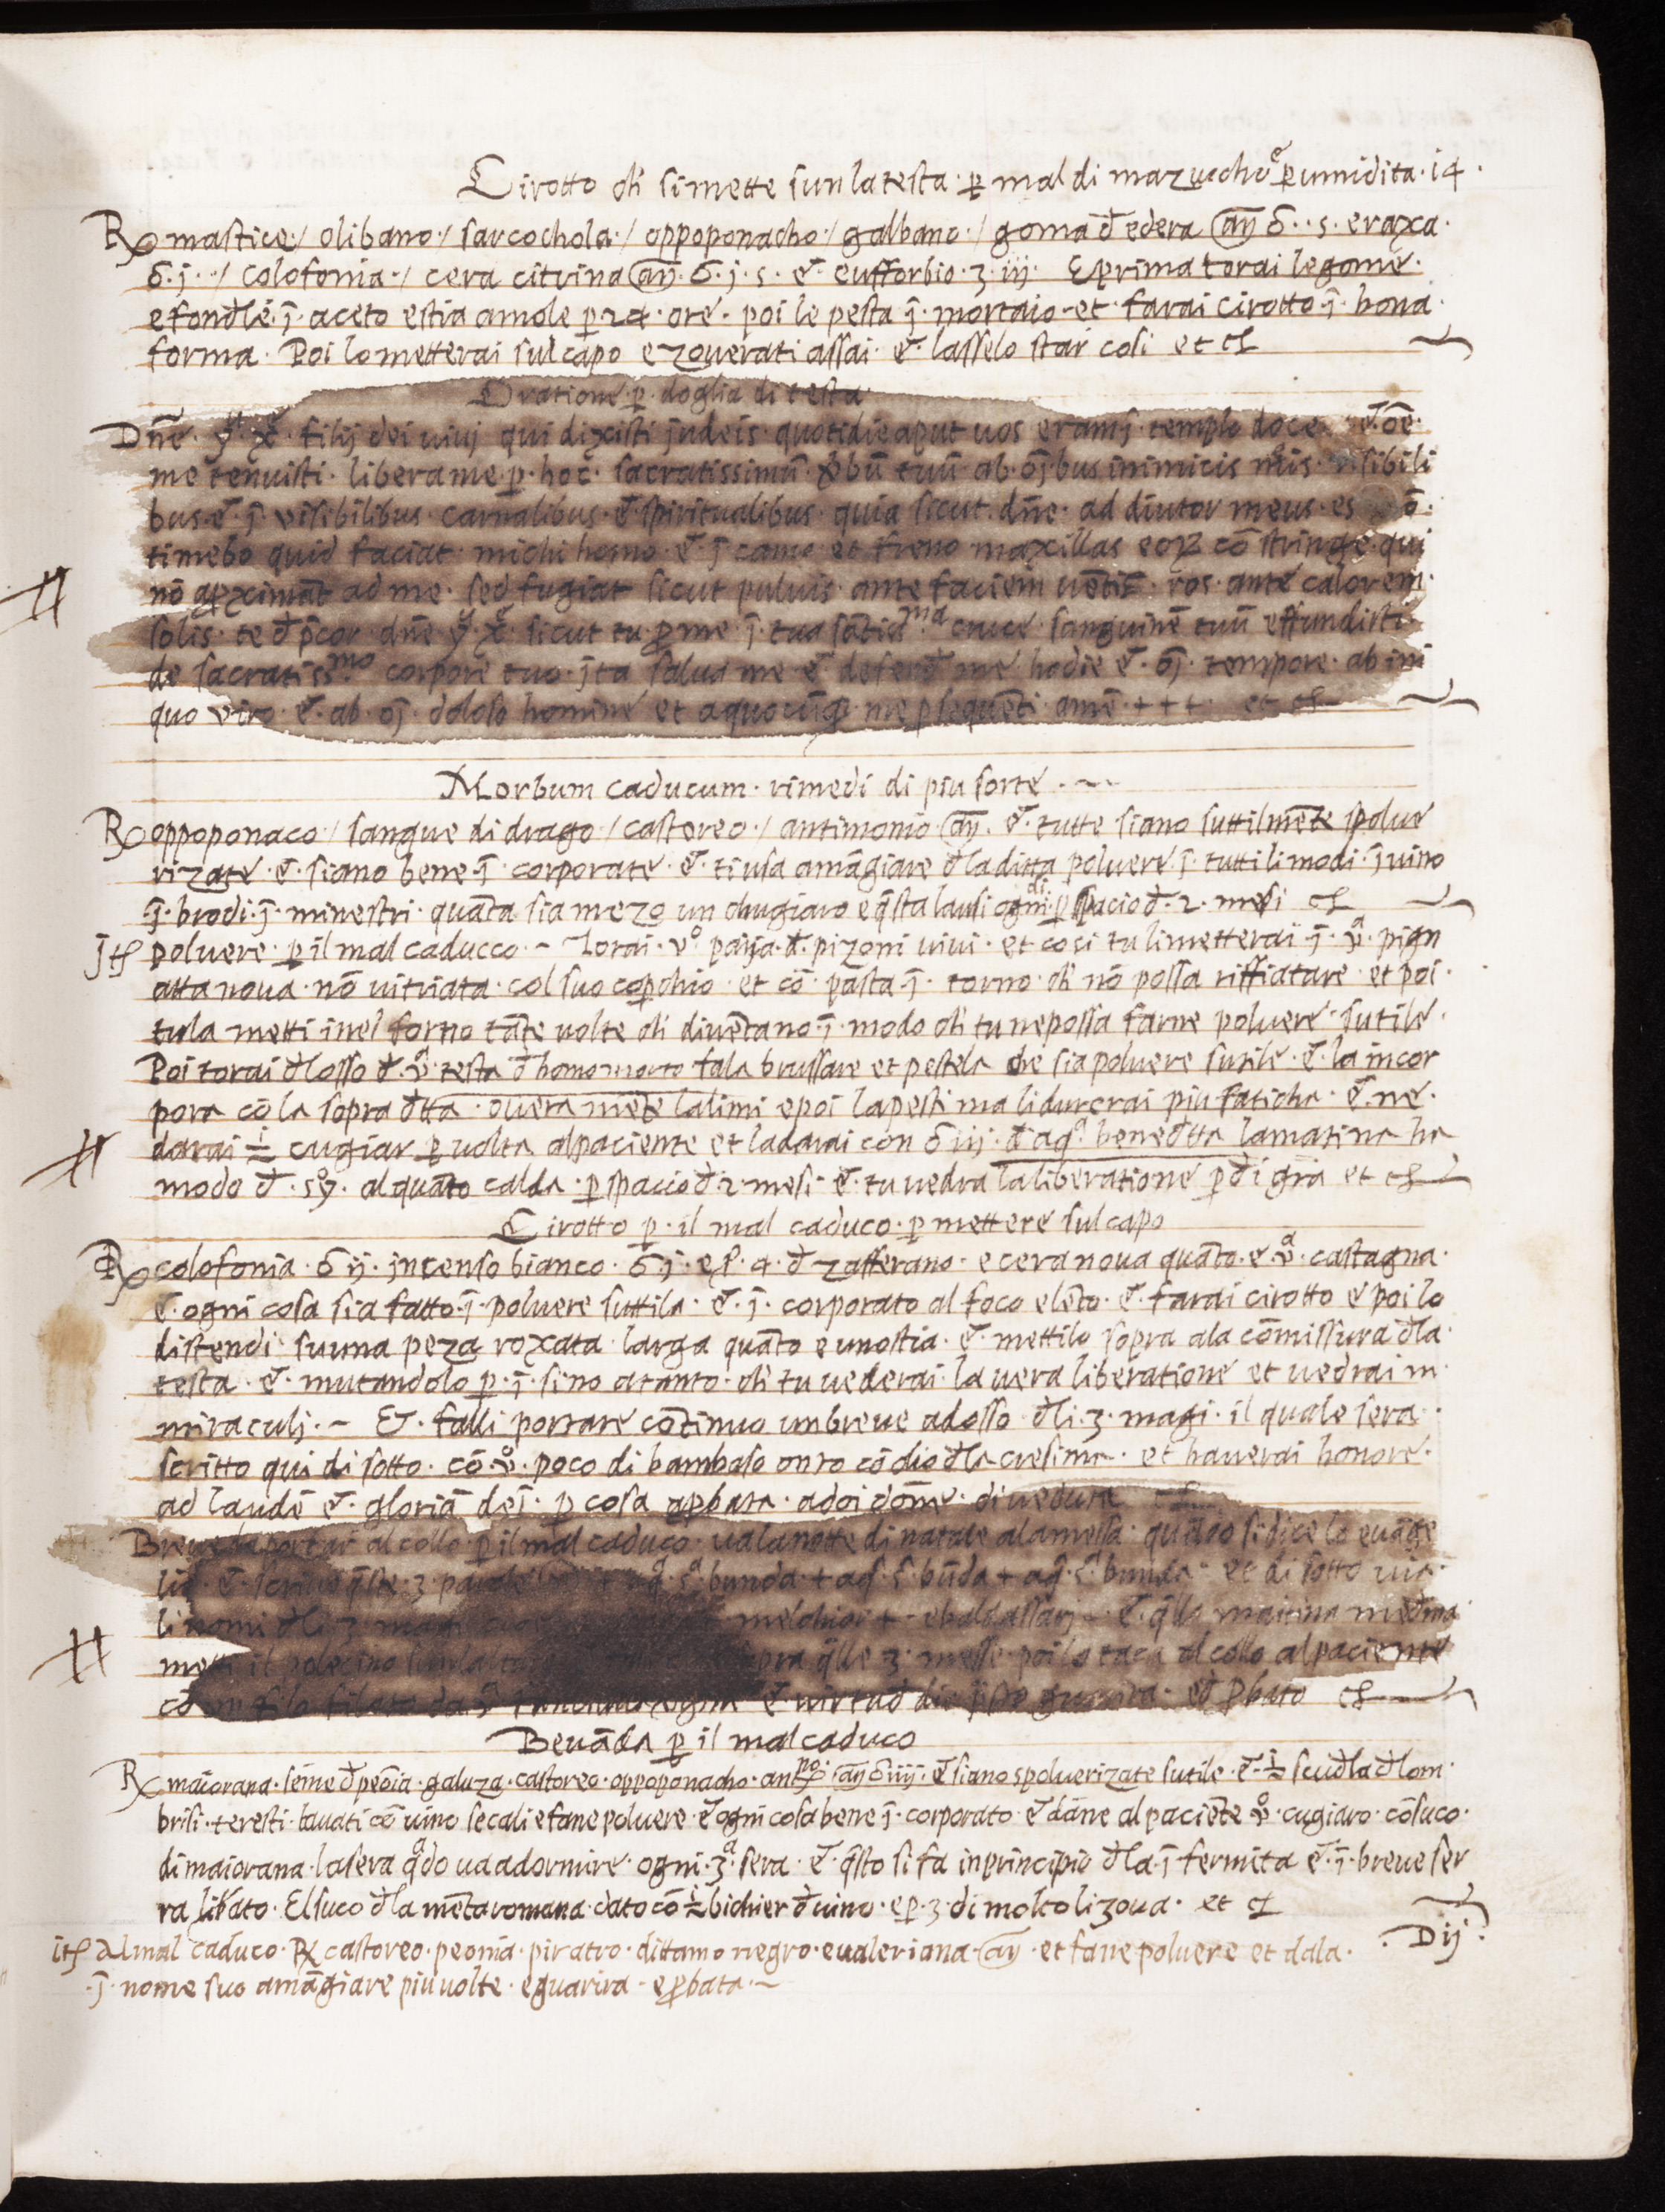 Cirotto ch̄ si mette sun la testa · ꝑ mal di mazucho e ꝑ umidita · 14 ·
℞ mastice / olibano · / sarcochola · / oppoponacho · / galbano · / goma d̄ edera añ ℥ · s · e raxa ·
℥ · j · · / colofonia · / cera citrina añ · ℥ · j · s · et · eufforbio · ʒ · iij · E prima torai le gome ·
e fondlé · j̄ · aceto e stia amole ꝑ 24 · ore · poi le pesta j̄ · mortaio · et · farai cirotto · j̄ · bona ·
forma · Poi lo metterai sul capo e zoverati assai · et · lasselo star cosi et cƚ
Oratione · ꝑ · doglia di testa ·
Dn̄e · yͧ · xͤ · filij dei vivj qui dixisti judeis · quotidie aput vos eram j̄ · templo doce et · oē ·
me tenuisti · libera me · ꝑ · hoc · sacratissimū · vbū tuū ab · oj̄bus inimicis mis · visibili
bus · et · j̄ · visibilibus · carnalibus · et · spiritualibus · quia sicut · dn̄e · ad diutor meus · es nō ·
timebo quid faciat · michi homo · et · j̄ camo et freno maxillas eoꝝ cō stringe · qui
nō aꝓximāt ad me · sed fugiat sicut pulvis · ante faciem vētis · ros · ante calorem ·
solis · te d̄ p̄cor · dn̄e yͧ xͤ · sicut tu · ꝓ me · j̄ · tua sātissma cruce · sanguinē tuū effundisti ·
de sacratissmo corpore tuo · jta salva me et · defend̄ me hodie et · oj̄ · tempore · ab ini
quo viro · et · ab · oj̄ · doloso homine et a quocūqꝫ · me ꝑsequēti · amē · + + + · et cƚ
Morbum caducum · rimedi di piu sorte · ~
℞ oppoponaco · / sangue di drago / castoreo · / antimonio añ · et · tutte siano suttilmēte spolve
rizate · et · siano bene · j̄ · corporate · et · ti usa amāgiare d̄la ditta polvere j̄ · tutti li modi · j̄ vino
· j̄ · brodi · j̄ · minestri · quāta sia mezo un chugiaro e q̄sta lausi ogni di ꝑ spacio d̄ · 2 · mesi cƚ
jtꝭ polvere · ꝑ il mal caducco · ~ Torai · vͦ · parja · d̄ · pizoni vivi · et cosi tu li metterai · j̄ · vͣ · pign
atta nova · nō vitriata · col suo coꝑchio · et cō · pasta · j̄ · torno · ch̄ nō possa riffiatare · et poi ·
tu la metti inel forno tāte volte ch̄ divētano · j̄ · modo ch̄ tu ne possa farne polvere · sutile ·
Poi torai d̄ losso d̄ · vͣ · testa d̄ homo morto fala brussare et pestela che sia polvere sutile · et · la incor
pora cō la sopra dtta · overamēte la limi e poi la pesti ma li durerai piu faticha · et · ne ·
darai ½ cugiar · ꝑ volta al paciente et la darai con ℥ iij · d̄ aqͣ · bened̄tta la matina ha
modo d̄ · soy · alquāto calda · ꝑ spaccio d̄ 2 · mesi · et · tu vedra la liberatione ꝑ di gr̄a et cƚ
Cirotto ꝑ · il mal caduco · ꝑ mettere sul capo
℞ colofonia · ℥ ij · jncenso bianco · ℥ j · e s · 4 · d̄ zafferano · e cera nova quāto · e · vͣ · castagna ·
et · ogni cosa sia fatto · j̄ · polvere suttila · et · j̄ · corporato al foco elēto · et · farai cirotto e poi lo
distendi su una peza roxata larga quāto e un ostia · et · mettilo sopra a la cōmissura d̄la ·
testa · et · mutandolo ꝑ · j̄ · sino atanto · ch̄ tu vederai · la vera liberatione et vedrai m ·
miraculj · ~ Et · falli portare cōtinuo un breve adosso d̄li · 3 · magi · il quale sera ·
scritto qui di sotto · cō · vͦ · poco di bambaso onto cō olio d̄la cresima · et haverai honore ·
ad laudē et · gloriā dei · ꝑ cosa aꝓbata · a doi dōne · di veduta cƚ
Breve da portar al collo · ꝑ il mal caduco · va la notte di natale a la messa · quādo si dice lo evāge
lio · et · scrive q̄ste · 3 · parole + aqͣ · sͣ · bunda · + aq · s · būda + aq̄ · sͣ · bunda · et di sotto
li nomi d̄li · 3 · magi melchior + · e baldassarj · et · q̄lla matina medma
metti il sopra q̄lle 3 · messe · poi lo taca al collo al paciente
cō un filo filato da vͣ et · virtu d̄ et ꝓbato cƚ
Bevāda ꝑ il mal caduco
℞ maiorana · seme d̄ peōia · galuza · castoreo · oppoponacho · añ ℥ iiij · et siano spolverizate sutile · et · ½ scud̄la d̄ lom ·
brisi · teresti · lavati cō vino secali e fane polvere · et ogni cosa bene j̄ · corporato et dāne al paciēte vͦ · cugiaro · cō suco ·
di maiorana · la sera qͣdo va a dormire · ogni · 3ͣ · sera · et · q̄sto si fa in principio d̄la · j̄ fermita et · j̄ · breve ser
ra lib̄ato · El suco d̄la mēta romana · dato cō ½ bichier d̄ vino · e ꝑ · 3 · di molto li zova · et cƚ
· Dij ·
itꝭ al mal caduco · ℞ castoreo · peonia · piratro · dittamo negro · e valeriana · añ · et fane polvere et dala ·
· j̄ · nome suo amāgiare piu volte · e guarira · e ꝓbata · ~